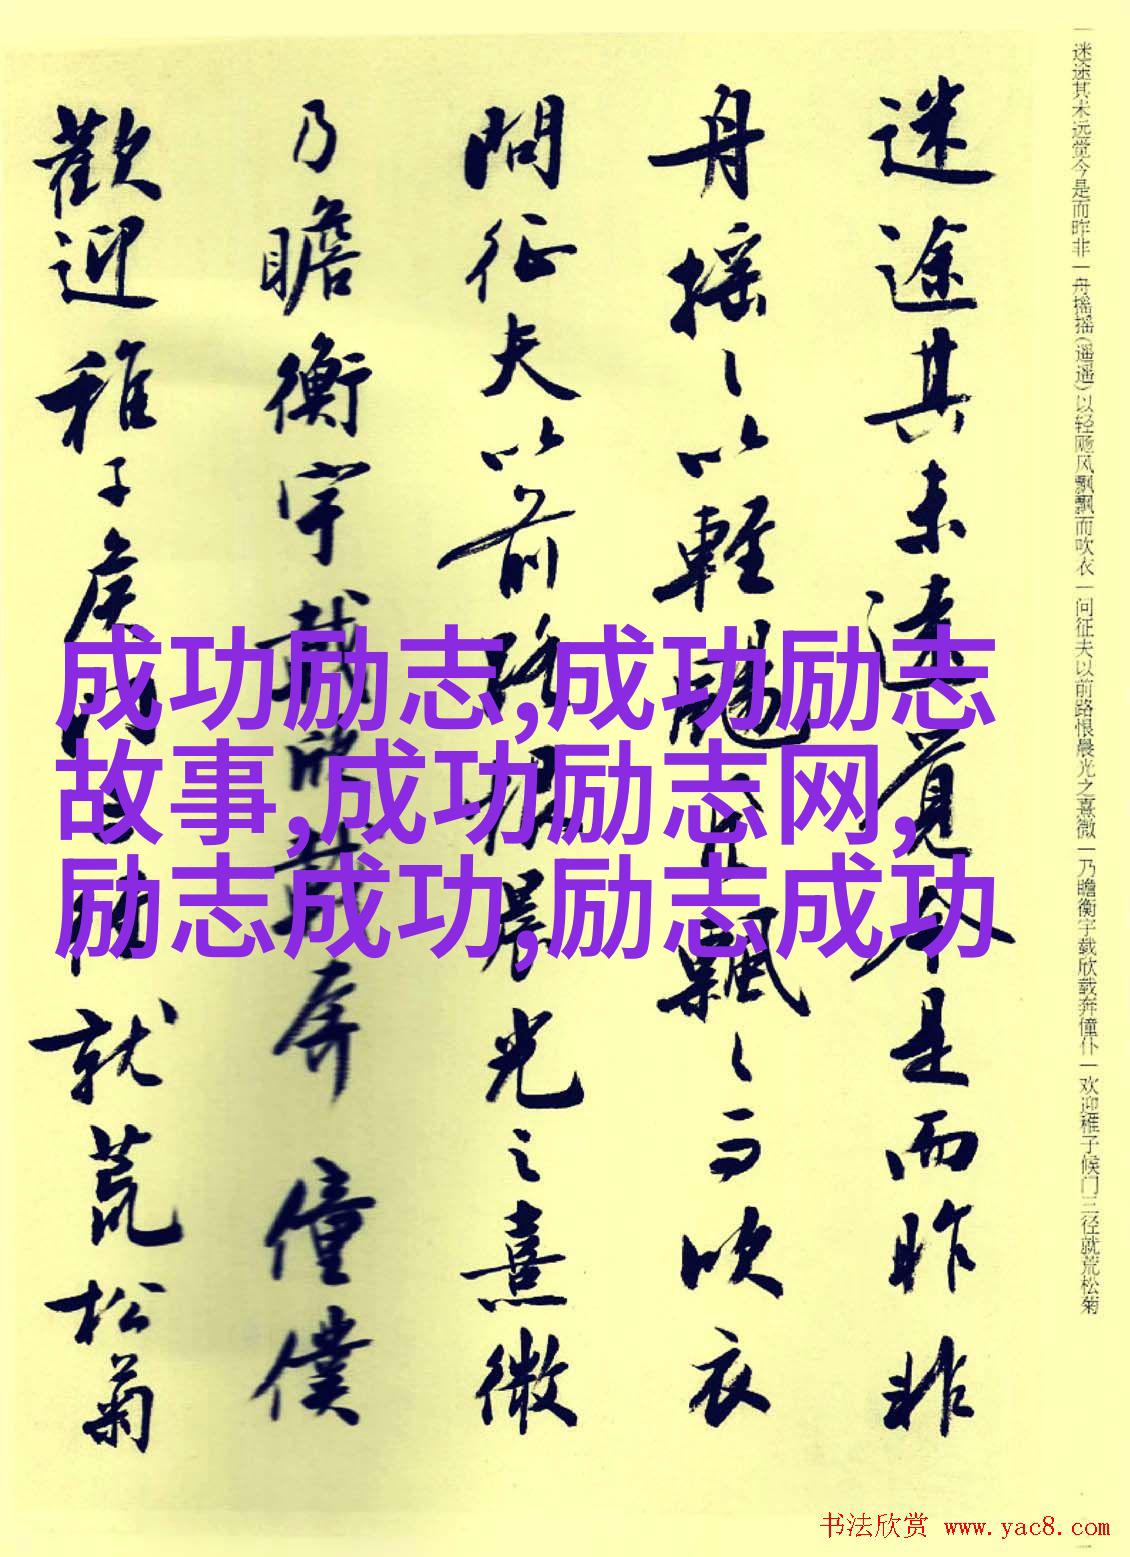 迷途其未远觉今是而昨非一舟摇摇(遥遥)以轻飏风飘飘而吹衣一问征夫以前路恨晨光之熹微一乃瞻衡宇载欣载奔僮仆一欢迎稚子候门三径就荒松菊
迷途其未遠覺今是而昨非
舟搖〻以輕颺風飄〻而吹衣
問征夫以前路恨晨光之熹微
乃瞻衡宇載欣載奔僮僕
歡迎稚子候門三径就荒松菊
成功励志,成功励志
故事,成功励志网,
励志成功,励志成功
书法欣赏 www.yac8.com